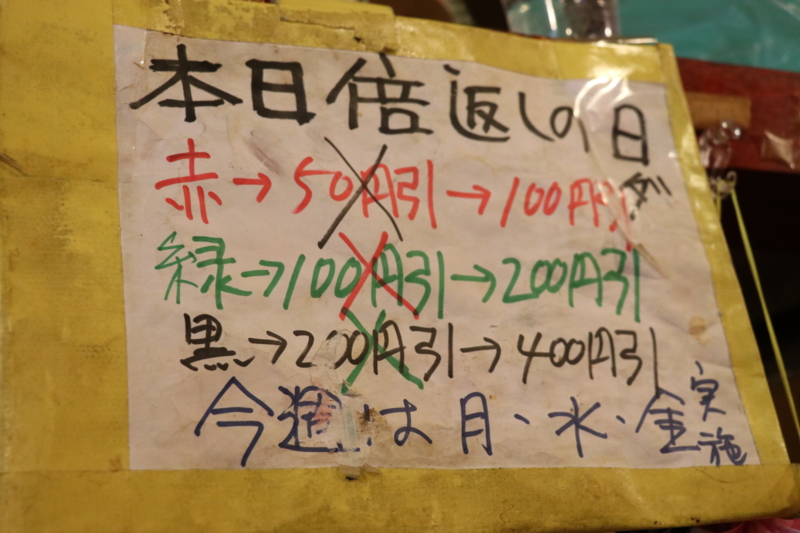 本日倍返しの日だ
赤→50円引→100円引
緑→100円引→200円引
黒→200円引→400円引
今週は月・水・金実施